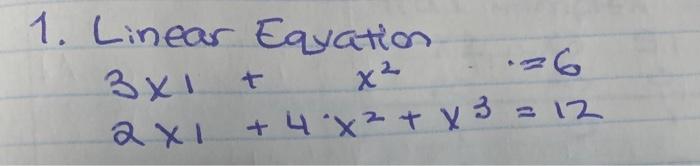 1. Linear Eqyation
3x1 + x² .=6
2x1 + 4.x² + x³ = 12